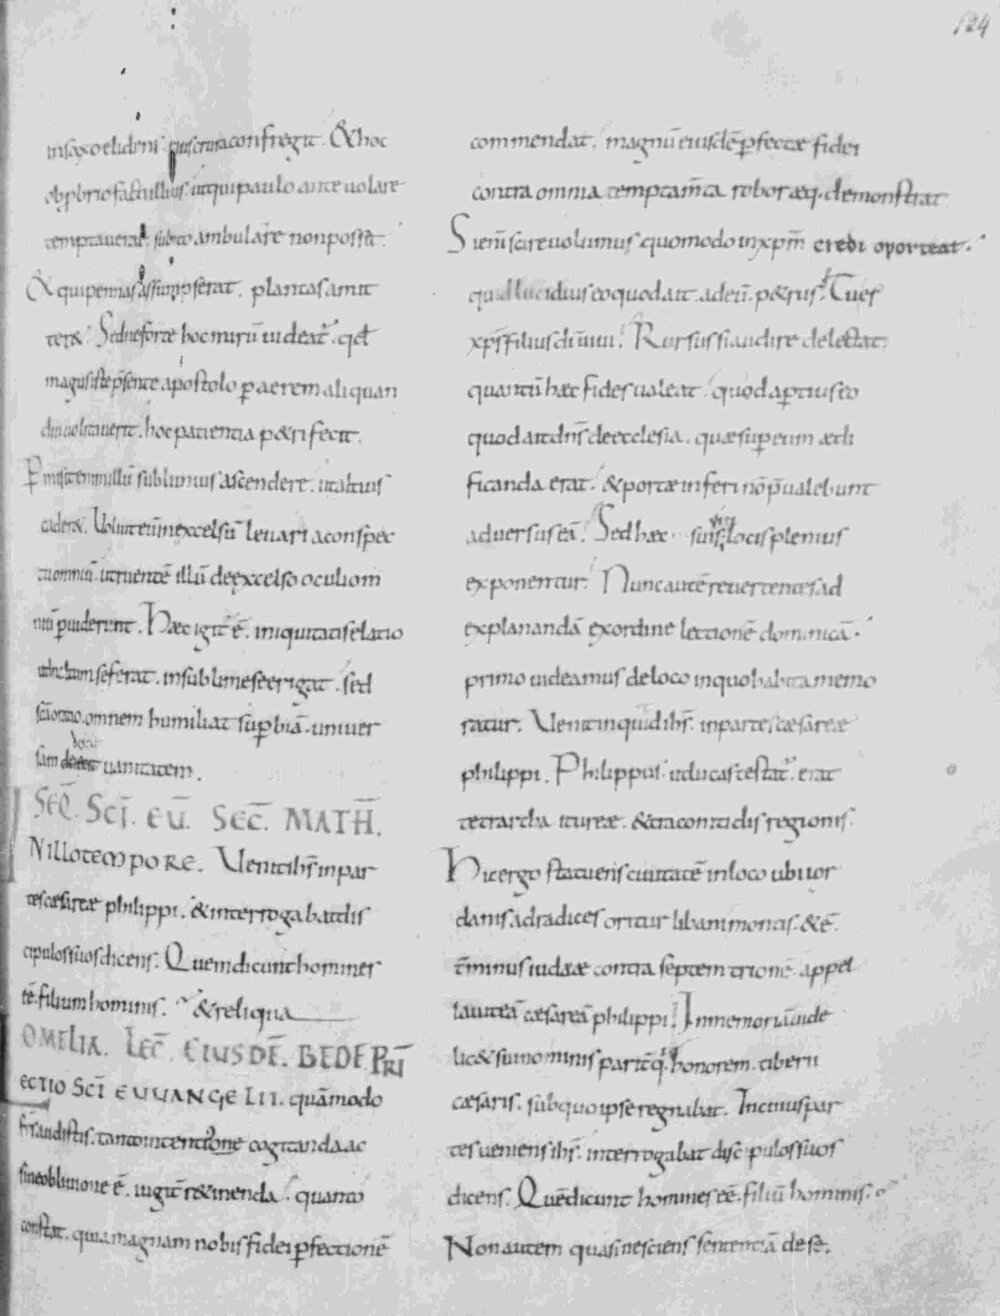 124
in saxo elidens eius crura confregit. & hoc
obprbrio factū illius ut qui paulo ante uolare
temptauerat. subito ambulare non posset.
& qui pennas assumpserat. plantas amit
ter&. Sed ne forte hoc mirū uideat̄ qđ
magus iste p̄sente apostolo ꝑ aerem aliquan
diu uolitauerit. hoc patientia p&ri fecit.
Pmisit enim illū sublimius ascendere. ut altius
cader&. Voluit eū in excelsū leuari a conspec
tu omniū. ut ruentē illū de excelso oculi om
niū ꝑuiderent. Haec igit̄ ē. iniquitatis elatio
se ferat. in sublime se erigat. sed
sc̄i oratio omnem humiliat suꝑbiā. uniuer
sam uanitatem.
SEQ̄. SC̄I. EŪ. SEC̄. MATH̄.
IN ILLO TEMPORE. Venit ihs̄ in par
tes caesareae philippi. & interrogabat dis
cipulos suos dicens. Quem dicunt homines
eē. filium hominis. & reliqua
OMELIA. LEC̄. EIUSDĒ. BEDE PRĪ
LECTIO SC̄I EUUANGELII. quā modo
fr̄s audistis. tanto intentione cogitanda ac
sine obliuione ē. iugit̄ r&inenda. quanto
constat. quia magnam nobis fidei ꝑfectionē
commendat. magnū eiusdē ꝑfectae fidei
contra omnia temptam̄ta robor aeq. demonstrat
Si eni scire uolumus quomodo in xp̄m credi oporteat.
quid lucidius eo quod ait. ad eū. p&rus. Tu es
xp̄s filius dī uiui. Rursus si audire delectat.
quantū haec fides ualeat. quod aꝑtius eo
quod ait dn̄s de ecclesia. quae suꝑ eum aedi
ficanda erat. & portae inferi nō p̄ualebunt
aduersus eā. Sed haec suis locis plenius
exponentur. Nunc autē reuertentes ad
explanandā ex ordine lectionē dominicā.
primo uideamus de loco in quo habita memo
ratur. Venit inquid ihs̄. in partes caesareae
philippi. Philippus. ut lucas testat̄. erat
tetrarcha itureae. & traconitidis regionis.
Hic ergo statuens ciuitatē in loco ubi ior
danis ad radices oritur libani montis. & ē
t̄minus iudaeae contra septem trionē. appel
lauit eā caesareā philippi. In memoriā uide
lic& sui nominis partē q. honorem. tiberii
caesaris. sub quo ipse regnabat. In cuius par
tes ueniens ihs̄. interrogabat disc̄ipulos suos
dicens. Quē dicunt homines eē. filiū hominis.
Non autem quasi nesciens sententiā de se.